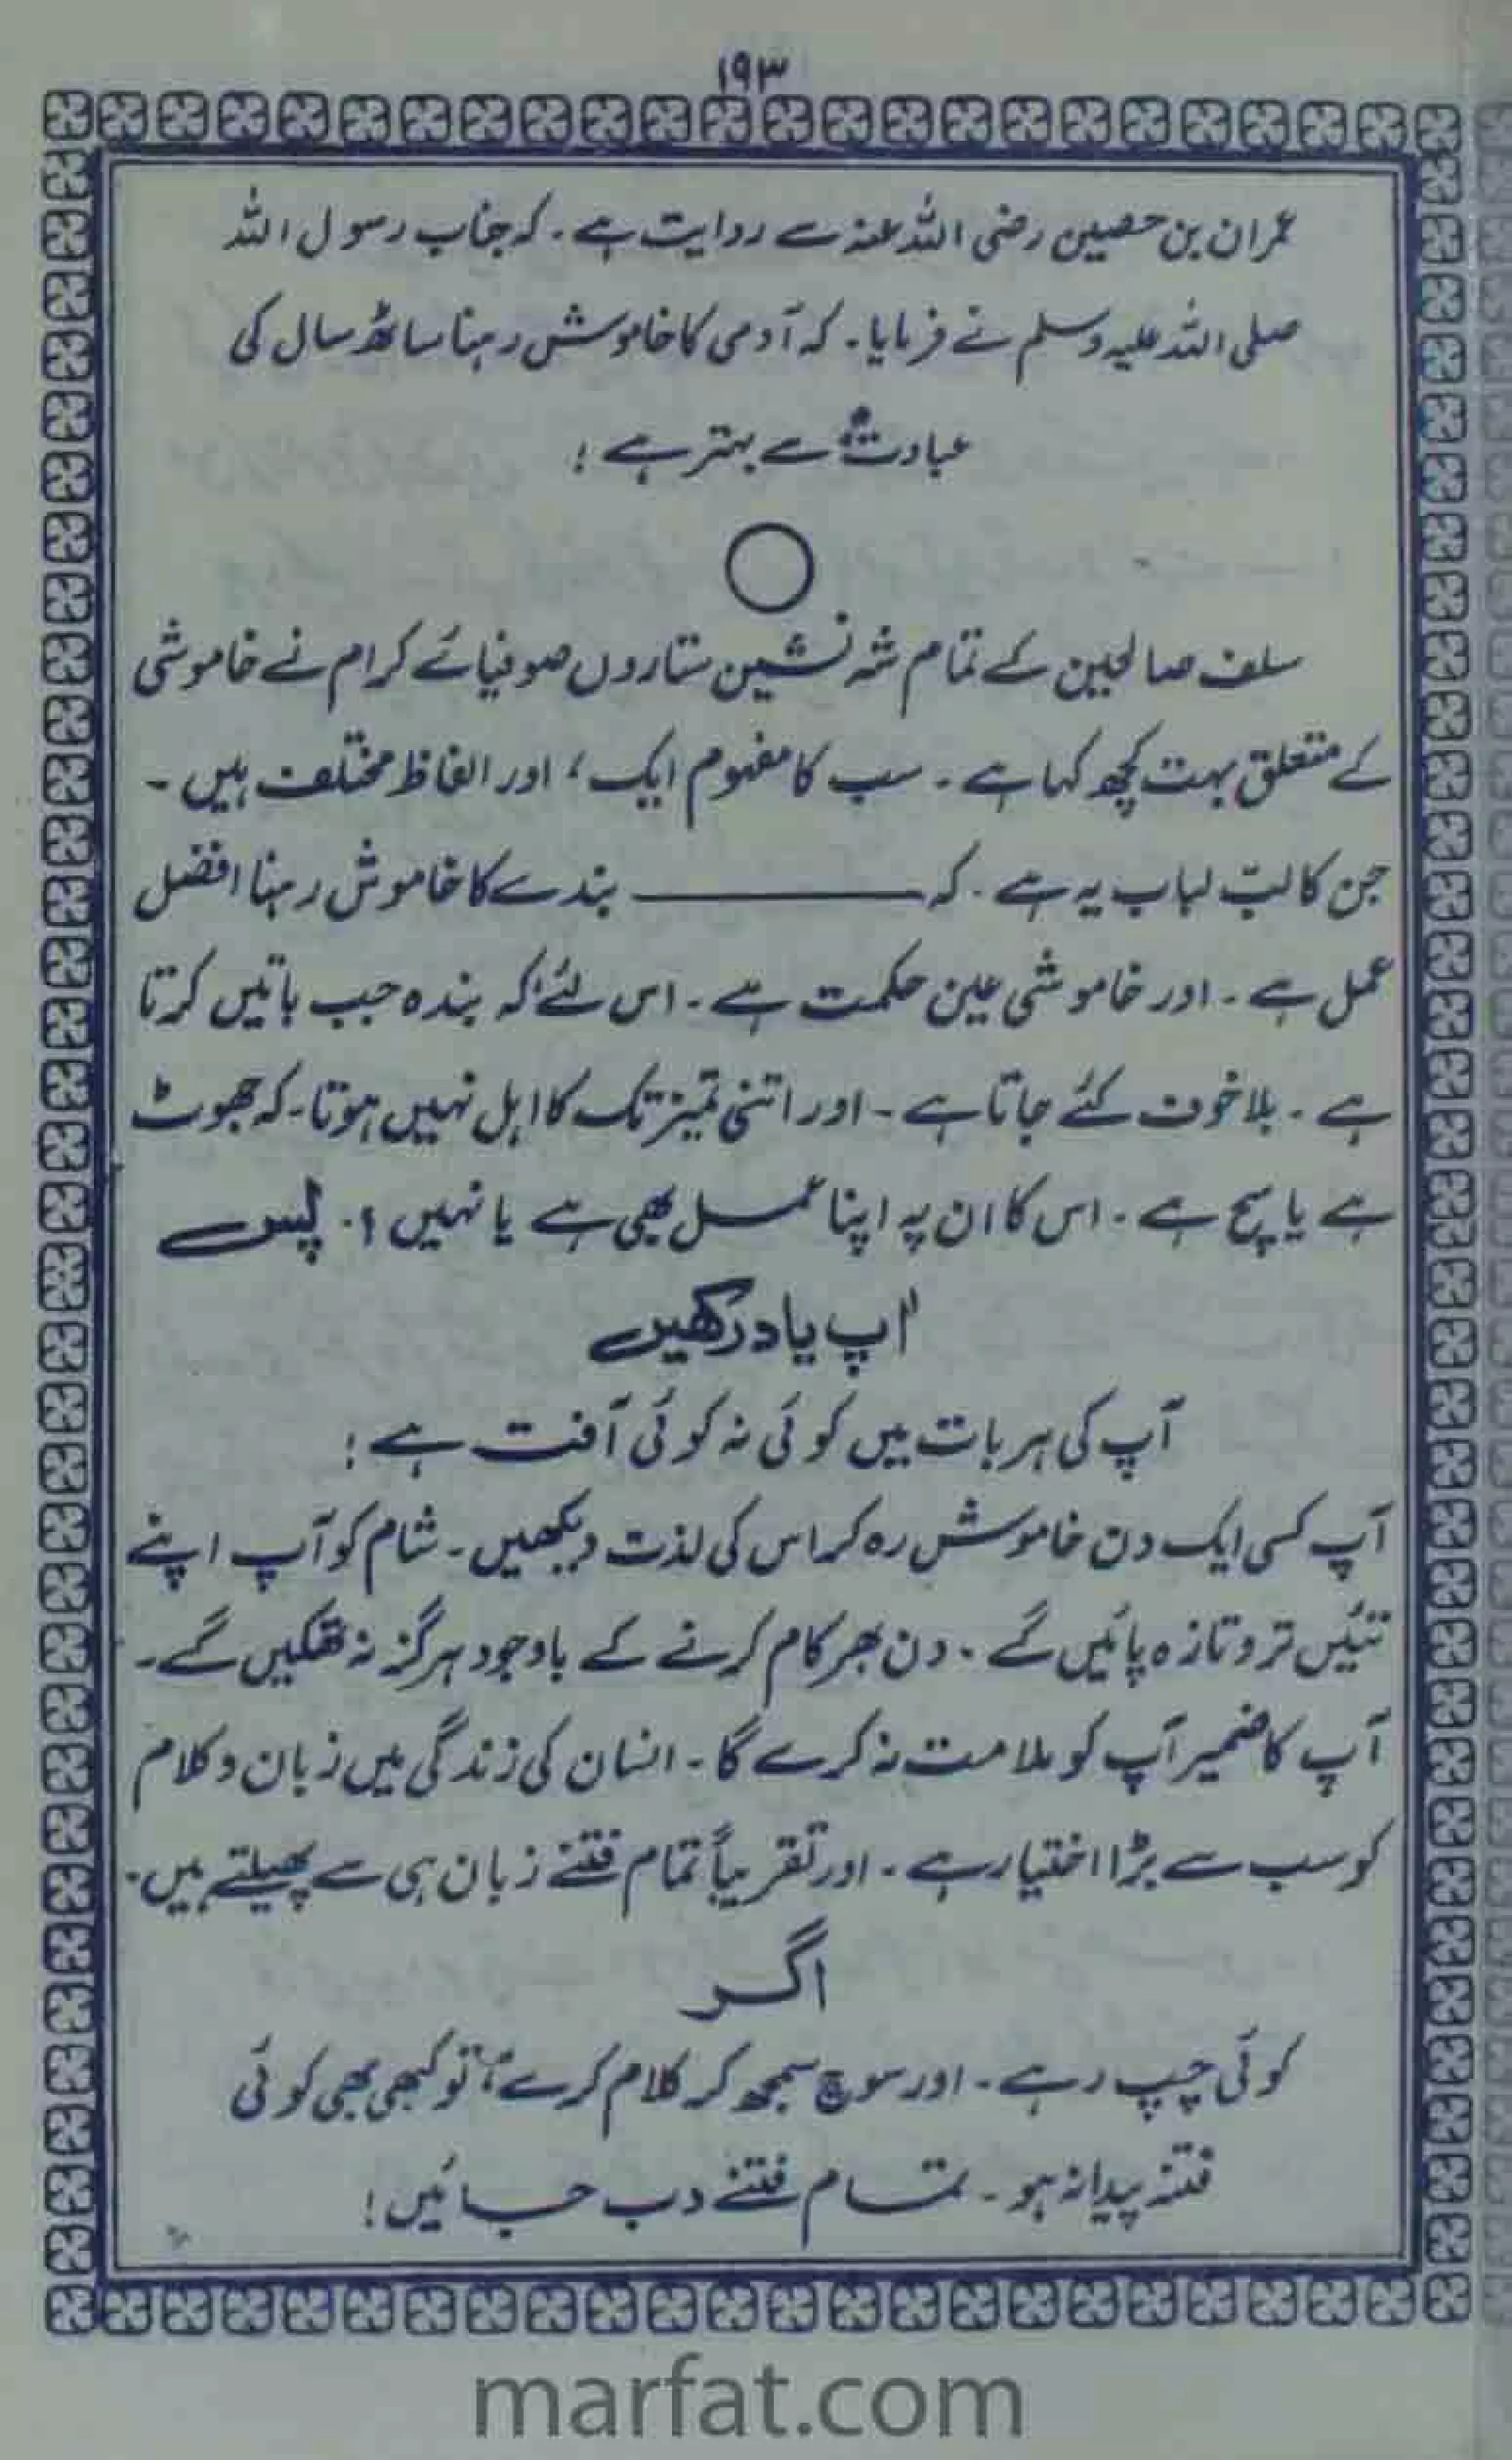 ۱۹۳
عمران بن حصین رضی اللہ عنہ سے روایت ہے ۔ کہ جناب رسول اللہ
صلی اللہ علیہ وسلم نے فرمایا ۔ کہ آدمی کا خاموش رہنا ساٹھ سال کی
عبادت سے بہتر ہے !
سلف صالحین کے تمام شہ نشین ستاروں صوفیائے کرام نے خاموشی
کے متعلق بہت کچھ کہا ہے ۔ سب کا مفہوم ایک ، اور الفاظ مختلف ہیں ۔
جن کا لبّ لباب یہ ہے ۔ کہ ــــــــــــــ بندے کا خاموش رہنا افضل
عمل ہے ۔ اور خاموشی عین حکمت ہے ۔ اس لئے کہ بندہ جب باتیں کرتا
ہے ۔ بلا خوف کئے جاتا ہے ۔ اور اتنی تمیز تک کا اہل نہیں ہوتا ۔ کہ جھوٹ
ہے یا سچ ہے ۔ اس کا ان پہ اپنا عمل بھی ہے یا نہیں ؟ ۔ پس
آپ یاد رکھیں
آپ کی ہر بات میں کوئی نہ کوئی آفت ہے !
آپ کسی ایک دن خاموش رہ کر اس کی لذت دیکھیں ۔ شام کو آپ اپنے
تئیں تر و تازہ پائیں گے ۔ دن بھر کام کرنے کے باوجود ہرگز نہ تھکیں گے ۔
آپ کا ضمیر آپ کو ملامت نہ کرے گا ۔ انسان کی زندگی میں زبان و کلام
کو سب سے بڑا اختیار ہے ۔ اور تقریباً تمام فتنے زبان ہی سے پھیلتے ہیں ۔
اگر
کوئی چپ رہے ۔ اور سوچ سمجھ کر کلام کرے ، تو کبھی بھی کوئی
فتنہ پیدا نہ ہو ۔ تمام فتنے دب جائیں !
marfat.com